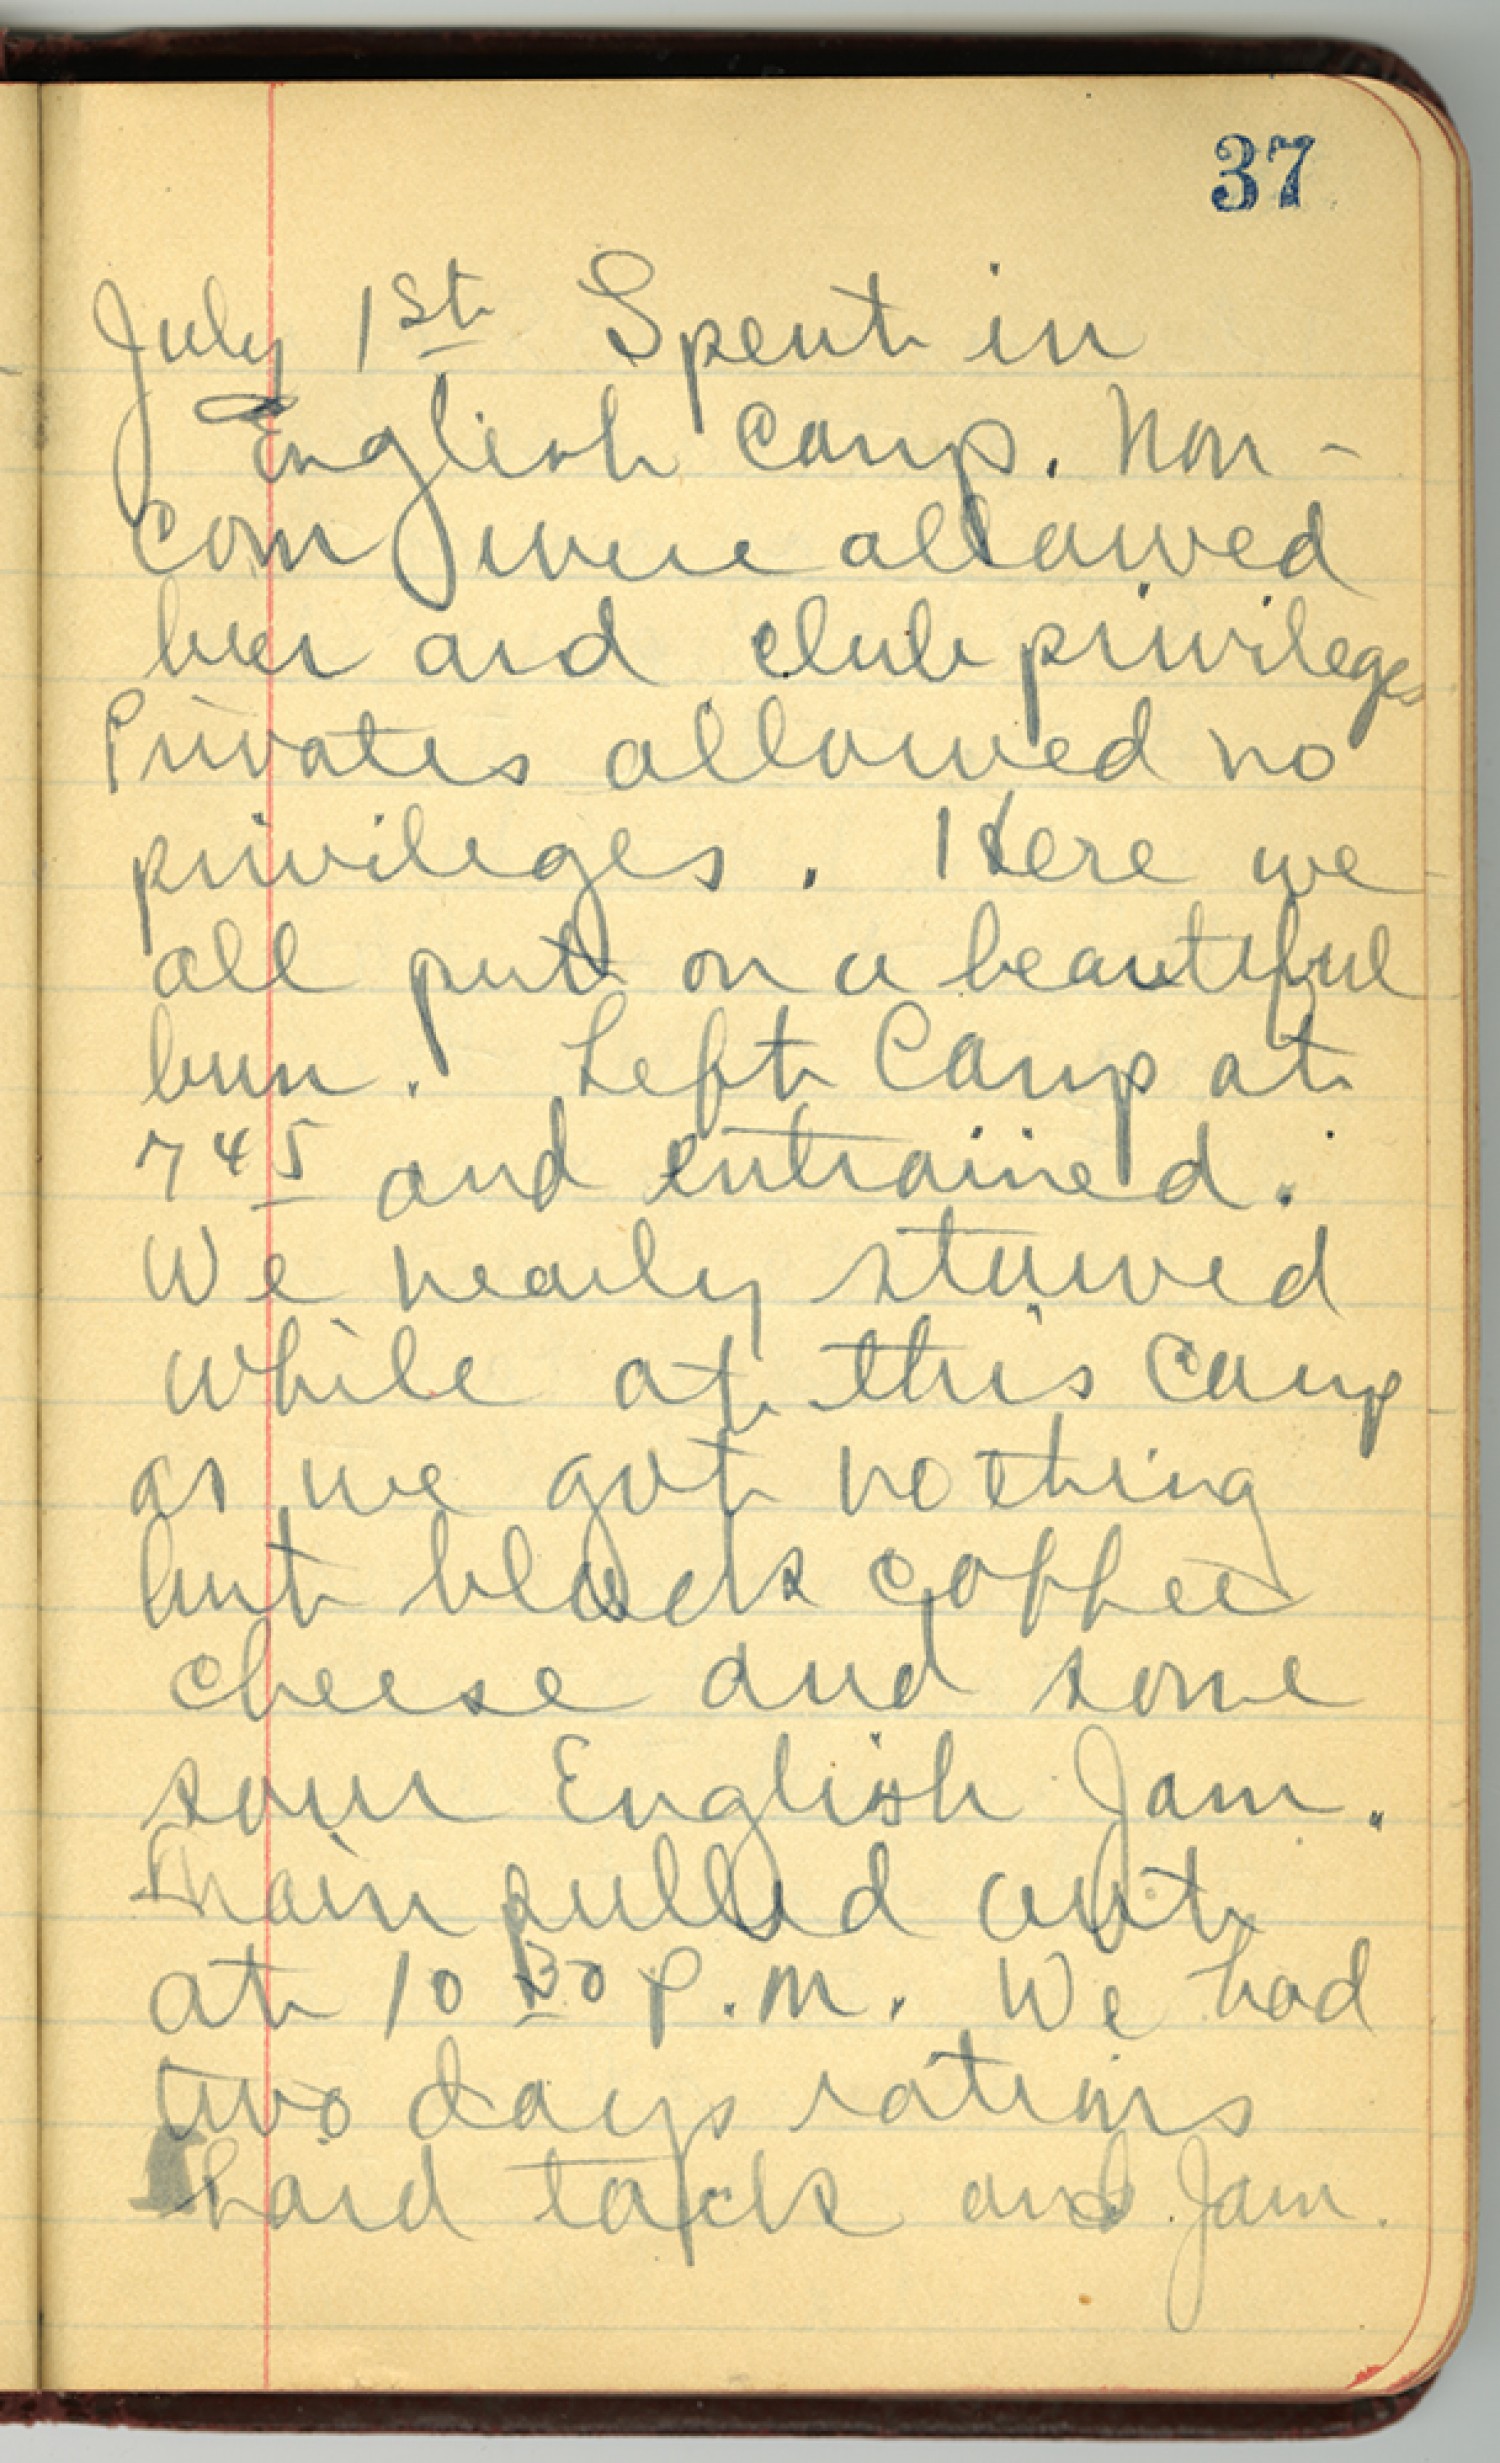 37
July 1st Spent in
English Camp. Non-
com were allowed
beer and club privileges
Privates allowed no
privileges. Here we
all put on a beautiful
bun. Left Camp at
745 and entrained.
We nearly starved
while at this Camp
as we got nothing
but black coffee
cheese and some
sour English Jam.
Train pulled out
at 10 30 P.M. We had
two days rations
hard tack and Jam.